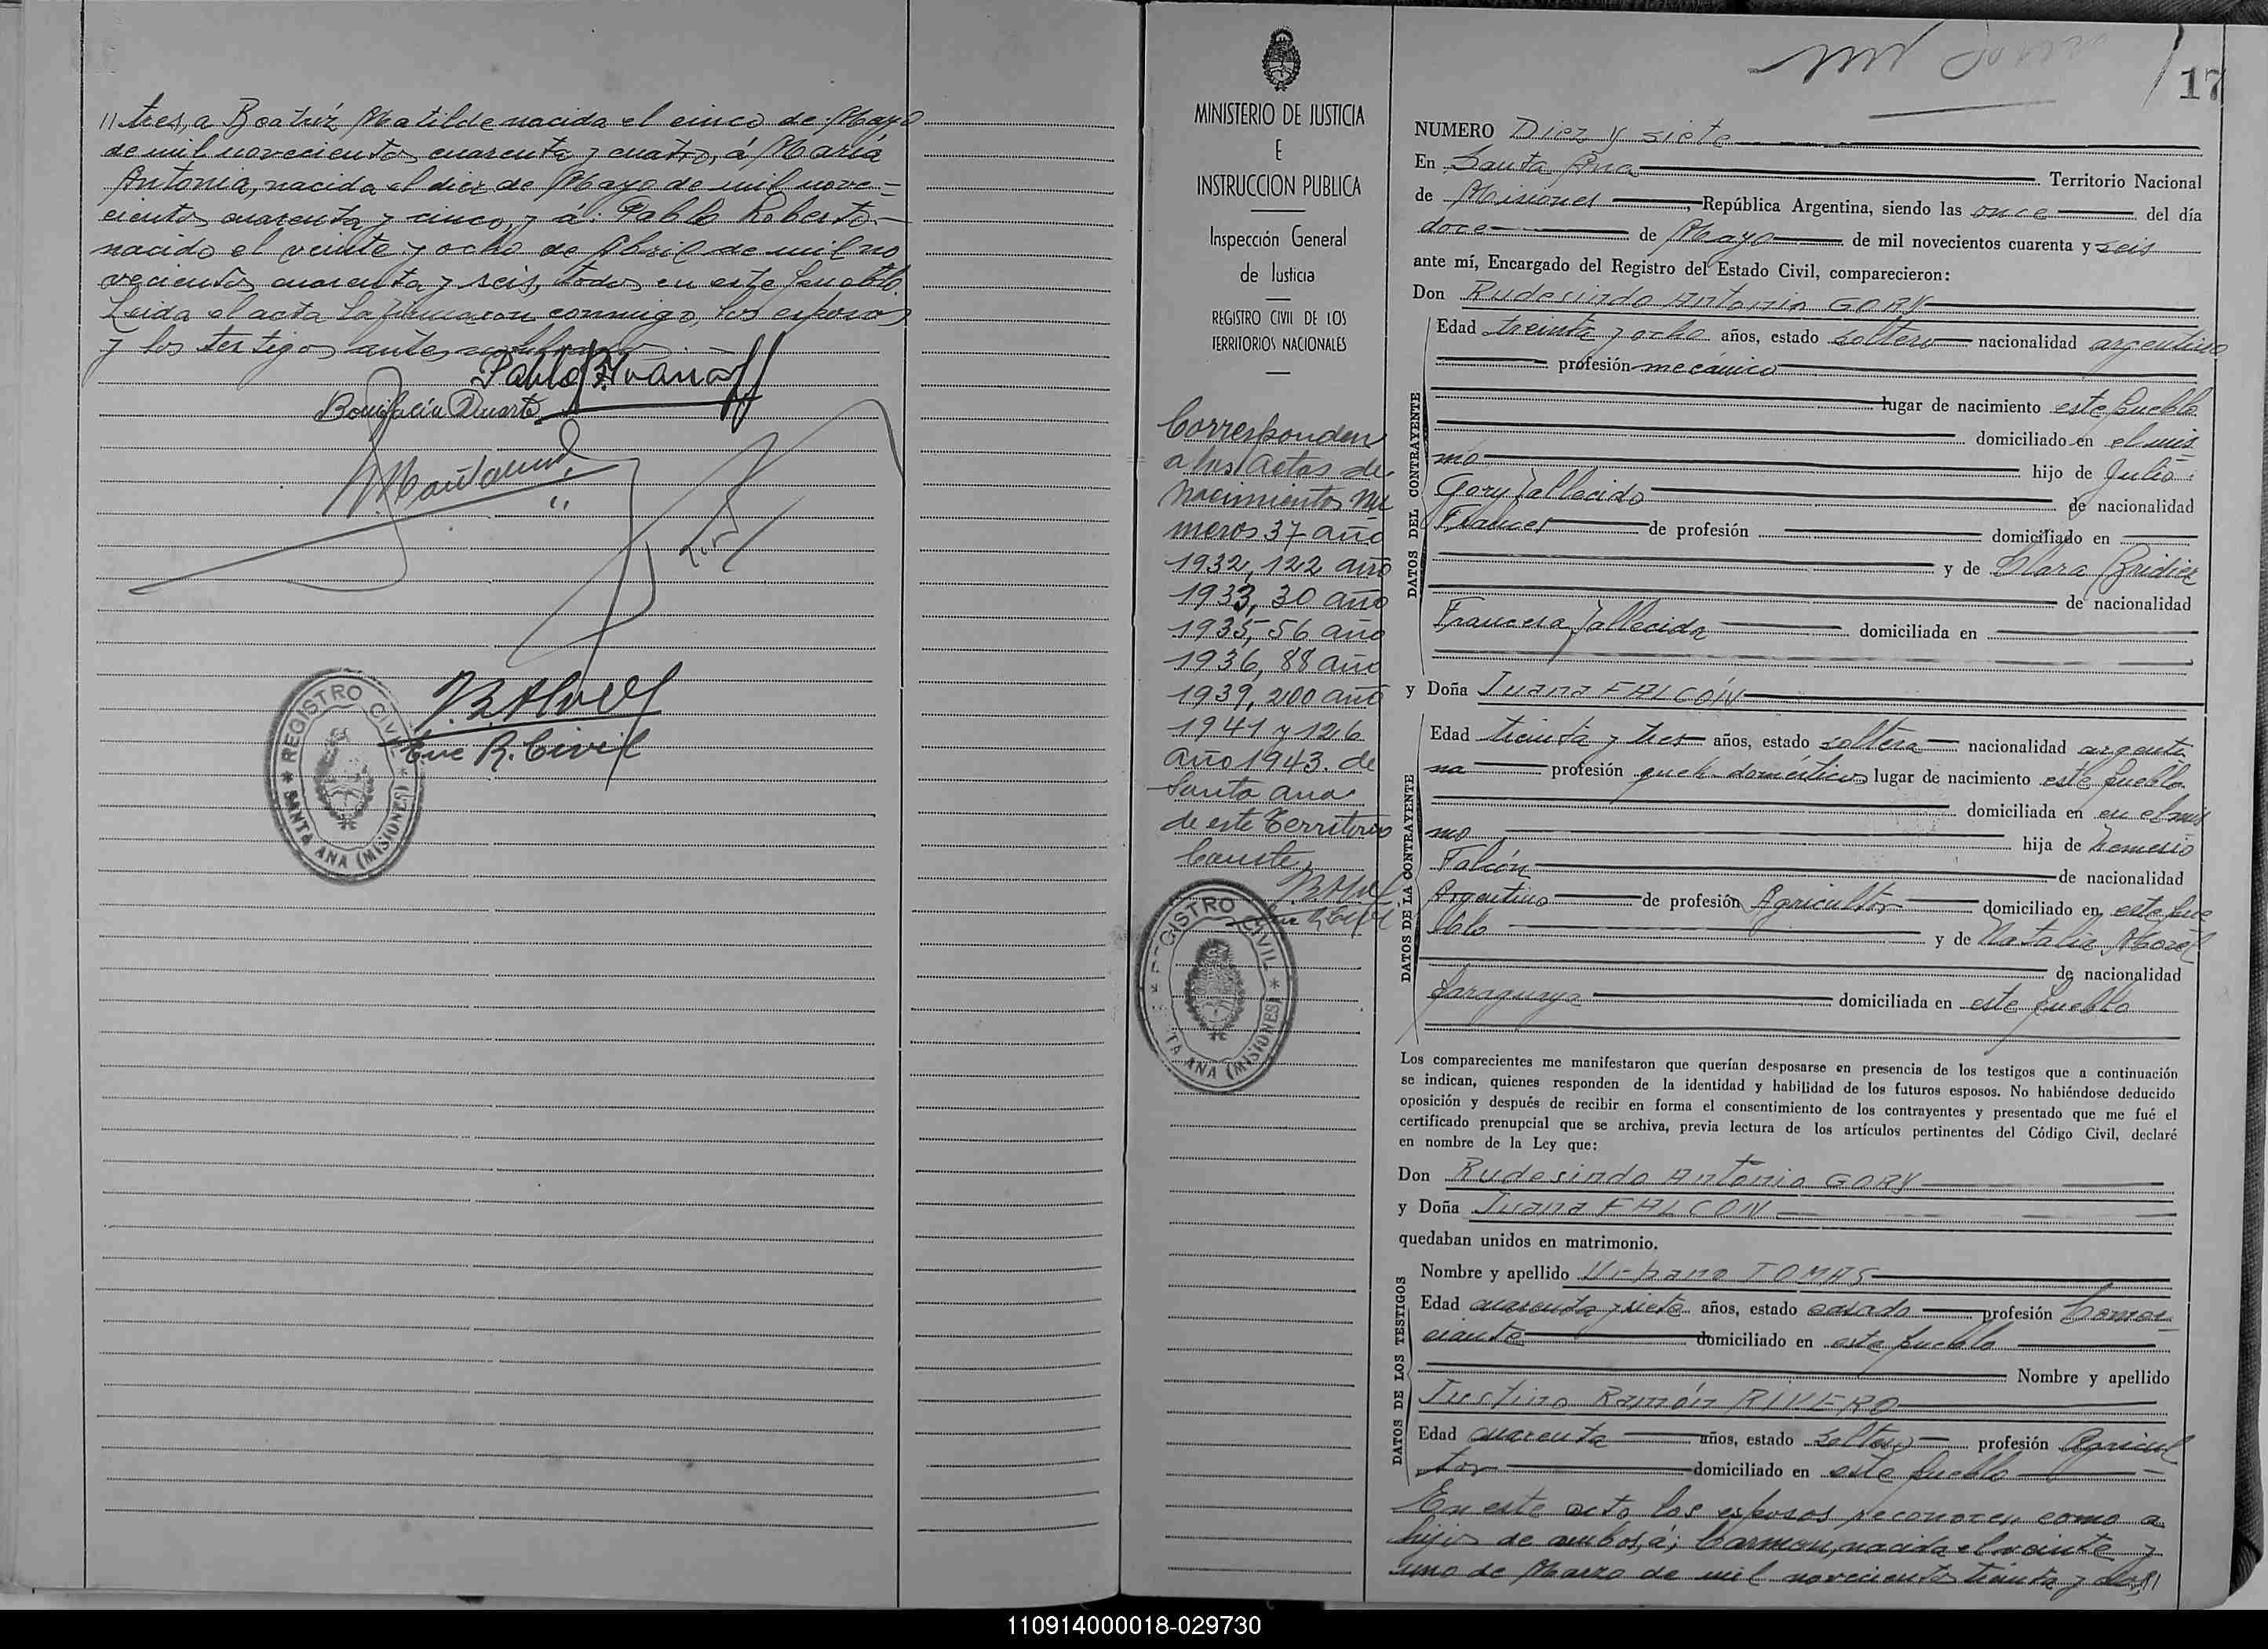 // tres, a Beatriz Matilde nacida el cinco de Mayo
de mil novecientos cuarenta y cuatro, á María
Antonia, nacida el diez de Mayo de mil nove=
cientos cuarenta y cinco, y á: Pablo Roberto
nacido el veinte y ocho de Abril de mil no
vecientos cuarenta y seis, todos en este Pueblo.
Leida el acta la firmaron conmigo, los esposos
y los testigos antes
Pablo Ivanoff
Bonifacia Duarte
Enc R. Civil
REGISTRO CIVIL
* SANTA ANA (MISIONES) *
MINISTERIO DE JUSTICIA
E
INSTRUCCION PUBLICA
Inspección General
de Justicia
REGISTRO CIVIL DE LOS
TERRITORIOS NACIONALES
Corresponden
a las Actas de
Nacimientos Nu
meros 37 año
1932, 122 año
1933, 30 año
1935, 56 año
1936, 88 año
1939, 200 año
1941 y 126
año 1943. de
Santa Ana
de este Territorio
Conste,
REGISTRO CIVIL *
TA ANA (MISIONES)
17
NUMERO Diez y siete
En Santa Ana Territorio Nacional
de Misiones, República Argentina, siendo las once del día
doce de Mayo de mil novecientos cuarenta y seis
ante mí, Encargado del Registro del Estado Civil, comparecieron:
Don Rudesindo Antonio GORY
DATOS DEL CONTRAYENTE
Edad treinta y ocho años, estado soltero nacionalidad argentino
profesión mecánico
lugar de nacimiento este Pueblo
domiciliado en el mis
mo hijo de Julio
Gory fallecido de nacionalidad
Frances de profesión domiciliado en
y de Clara Bridier
de nacionalidad
Francesa, fallecida domiciliada en
y Doña Juana FALCÓN
DATOS DE LA CONTRAYENTE
Edad treinta y tres años, estado soltera nacionalidad argenti
na profesión queh. domésticos lugar de nacimiento este Pueblo
domiciliada en en el mis
mo hija de Nemesio
Falcón de nacionalidad
Argentino de profesión Agricultor domiciliado en este Pue
blo y de Natalia Morel
de nacionalidad
paraguaya domiciliada en este Pueblo
Los comparecientes me manifestaron que querían desposarse en presencia de los testigos que a continuación
se indican, quienes responden de la identidad y habilidad de los futuros esposos. No habiéndose deducido
oposición y después de recibir en forma el consentimiento de los contrayentes y presentado que me fué el
certificado prenupcial que se archiva, previa lectura de los artículos pertinentes del Código Civil, declaré
en nombre de la Ley que:
Don Rudesindo Antonio GORY
y Doña Juana FALCON
quedaban unidos en matrimonio.
DATOS DE LOS TESTIGOS
Nombre y apellido Urbano TOMAS
Edad cuarenta y siete años, estado casado profesión Comer
ciante domiciliado en este Pueblo
Nombre y apellido
Justino Ramón RIVERO
Edad cuarenta años, estado soltero profesión Agricul
tor domiciliado en este Pueblo
En este acto los esposos reconocen como a
hijos de ambos, á; Carmen, nacida el veinte y
uno de Marzo de mil novecientos treinta y dos, //
110914000018-029730